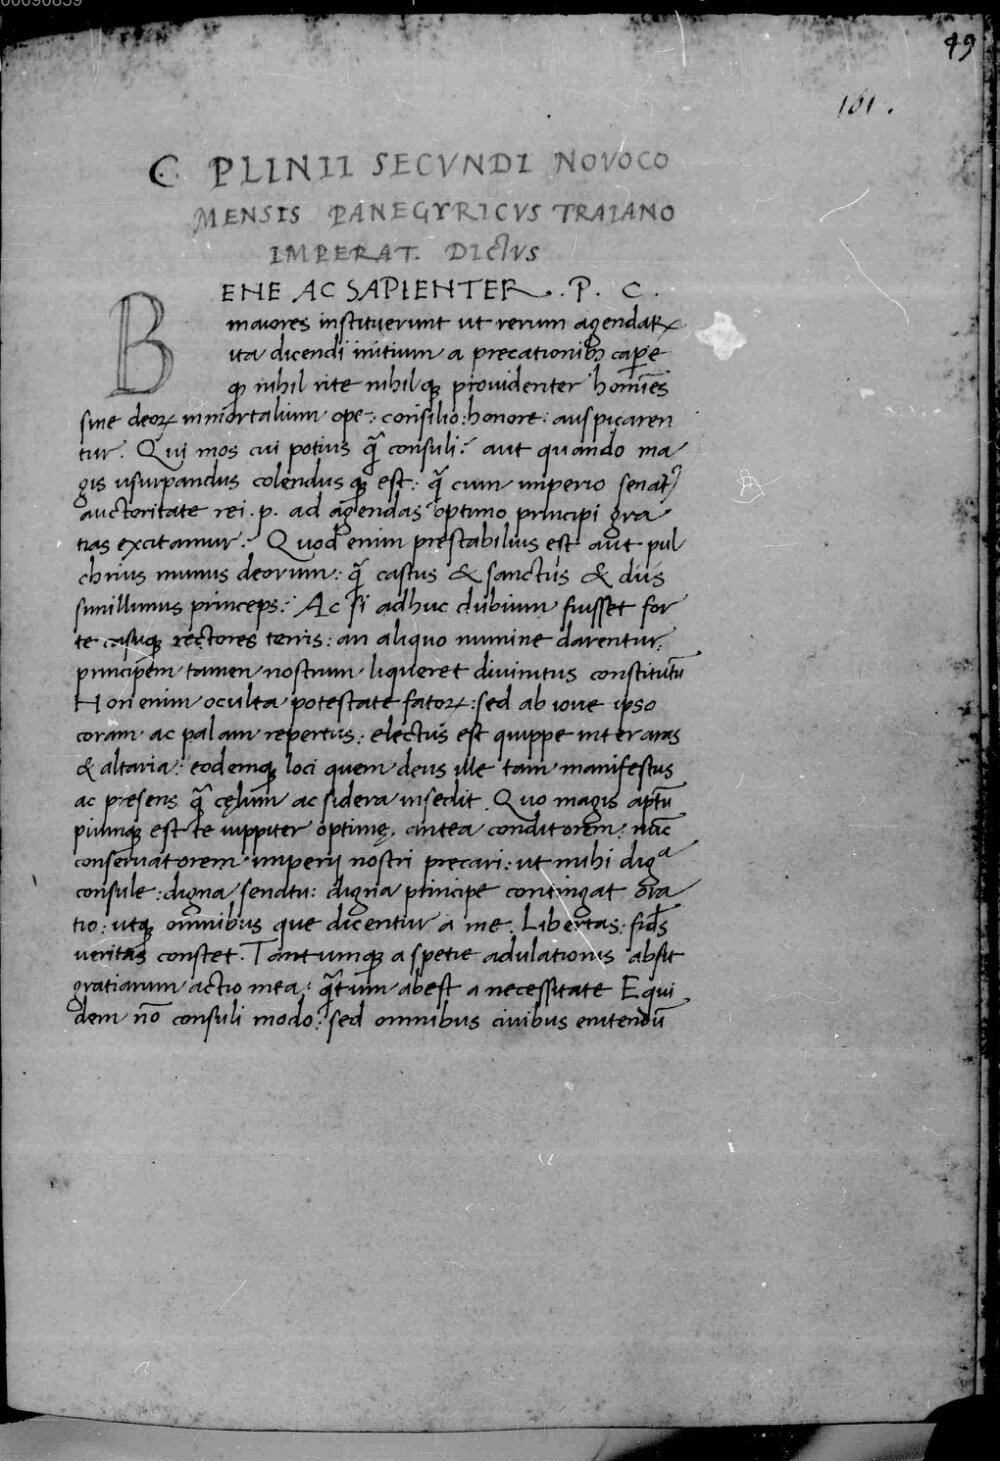 00090859
49
161.
C. PLINII SECVNDI NOVOCO
MENSIS PANEGYRICVS TRAIANO
IMPERAT. DICTVS
BENE AC SAPIENTER. P. C.
maiores instituerunt ut rerum agendaꝝ
ita dicendi initium a precationibꝫ capere
qꝫ nihil rite nihil qꝫ prouidenter homĩes
sine deoꝝ immortalium ope: consilio: honore: auspicaren
tur. Qui mos cui potius q̃ consuli? aut quando ma
gis usurpandus colendus qꝫ est: q̃ cum imperio senatꝰ
auctoritate rei .p. ad agendas optimo principi gra
tias excitamur? Quod enim prestabilius est aut pul
chrius munus deorum: q̃ castus & sanctus & diis
simillimus princeps? Ac si adhuc dubium fuisset for
te casuqꝫ rectores terris: an aliquo numine darentur:
principem tamen nostrum liqueret diuinitus constitutũ
Non enim oculta potestate fatoꝝ: sed ab ioue ipso
coram ac palam repertus: electus est quippe inter aras
& altaria: eodemqꝫ loci quem deus ille tam manifestus
ac presens q̃ cęlum ac sidera insedit. Quo magis aptũ
piumqꝫ est te iuppiter optimę, antea conditorem: nũc
conseruatorem imperij nostri precari: ut mihi digª
consule: digna senatu: digna principe contingat ora
tio: utqꝫ omnibus que dicentur a me. Libertas: fides
ueritas constet. Tantumqꝫ a spetie adulationis absit
gratiarum actio mea: q̃tum abest a necessitate Equi
dem nõ consuli modo: sed omnibus ciuibus enitendũ